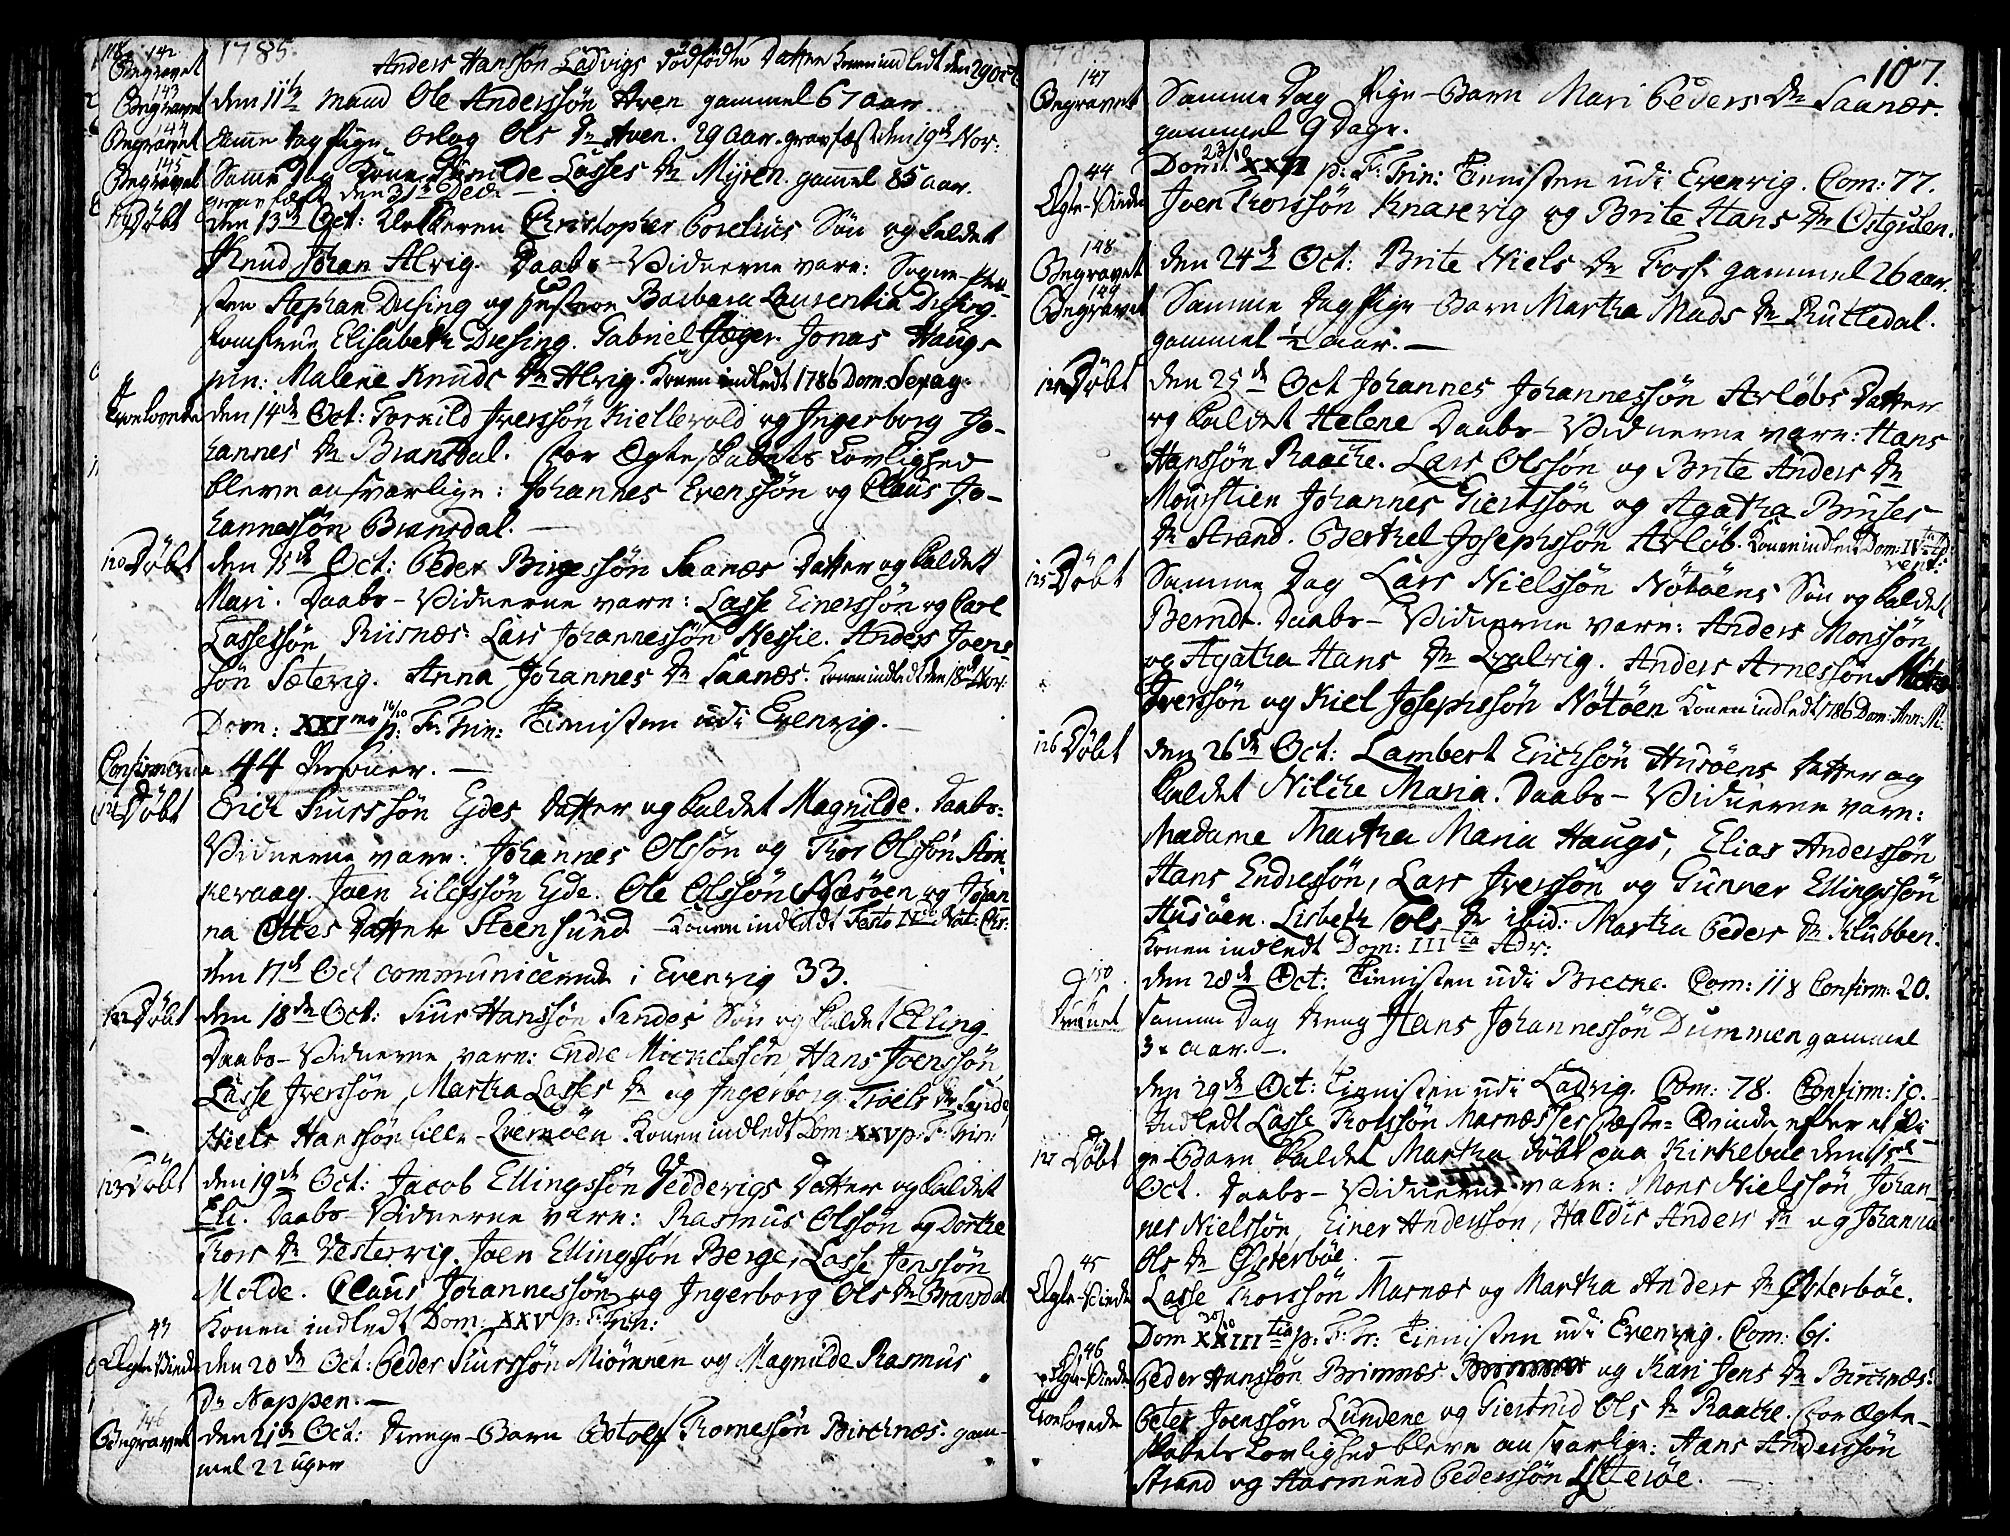 118 142 1785. Anders Hanssøn Ladvigs dødfødte Datter Konen indledt den 29 Oct
Begravet
143
Begravet den 11te Mand Ole Anderssøn Aven gammel 67 aar.
144
Begravet Samme dag Pige Oslog Ols Dr Aven. 29 aar. gravfæst den 19de Nov:
145
Begravet Samme Dag Kone Lasses Dr Myren. gamel 85 aar.
gravfæst den 31te Decbr
119 Døbt den 13de Oct: Klokkeren Christopher Soselius Søn og kaldet
Knud Johan Alvig. Daabs-Vidnerne vare: Sogne-Præ-
sten Stephan Dresing og Hustroe Barbara Laurentia Dresing.
Jomfrue Elisabeth Dresing. Gabriel Jæger. Jonas Haugs
pin: Malene Knuds Dr Alvig. Konen indledt 1786 Dom: Sexag:
Trolovede den 14de Oct: Tornild Iverssøn Kiellevold og Ingerborg Jo-
hannes Dr Bransdal. For Ægteskabets Lovlighed
bleve ansvarlige: Johannes Evenssøn og Claus Jo-
hannessøn Bransdal. —
120 Døbt den 15de Oct: Peder Birgessøn Saanæs Datter og kaldet
Mari. Daabs-Vidnerne vare: Lasse Einerssøn og Carl
Lassessøn Riisnæs. Lars Johannessøn Nessie. Anders Joens-
søn Sætevig. Anna Johannes Dr Saanæs. Konen indledt den 18de Nov:
Dom: XXImo 16/10 p: F: Trin: Tienisten udi Evenvig. —
Confirmerede 44 Personer. —
121 Døbt Erich Siurssøn Ejdes Datter og kaldet Magnilde. Daabs-
Vidnerne vare: Johannes Olssøn og Thor Olssøn Ston
nevaag. Joen Eilefssøn Ejde. Ole Olssøn Næsøen og Johan
na Ottes Datter Steensund Konen indledt Festo IIdo Nat: Chr:
den 17de Oct communicerede i Evenvig 33.
122 Døbt den 18de Oct: Siur Hanssøn Sundes Søn og kaldet Elling.
Daabs-Vidnerne vare: Endre Michelssøn, Hans Joenssøn,
Lasse Iverssøn, Martha Lasses Dr og Ingerborg Troels Dr Sunde,
Niels Hanssøn lille-Evenøen. Konen indledt Dom: XXV p: F: Trin:
123 Døbt den 19de Oct: Jacob Ellingssøn Vedderigs Datter og kaldet
Eli. Daabs-Vidnerne vare: Rasmus Olssøn og Dorthe
Thors Dr Vestervig. Joen Ellingssøn Berge, Lasse Jenssøn
Molde. Claus Johannessøn og Ingerborg Ols Dr Bransdal
Konen indledt Dom: XXV p: F: Trin:
43
Ægte-Viede den 20de Oct: Peder Siurssøn Miømnen og Magnilde Rasmus
Dr Nappen. —
146
Begravet den 21de Oct: Drenge-Barn Botolf Thomessøn Birchnæs. gam-
mel 22 uger
107.
147
Begravet Samme Dag Pige-Barn Mari Peders Dr Saanæs.
gammel 9 Dage.
23/10
Dom: XXII p: F: Trin: Tienisten udi Evenvig. Com: 77.
44
Ægte-Viede Joen Thorssøn Knarevig og Brite Hans Dr Østgulen.
148
Begravet den 24de Oct: Brite Niels Dr Foss. gammel 26 aar.
149
Begravet Samme Dag Pige-Barn Martha Mads Dr Rutledal.
gammel ½ aar. —
124 Døbt den 25de Oct Johannes Johannessøn Arløbs Datter
og kaldet Helene Daabs-Vidnerne vare: Hans
Hanssøn Raache. Lars Olssøn og Brite Anders Dr
Mourstien Johannes Giertssøn og Agatha Bruses
Dr Strand. Berthel Josephssøn Arløb. Konen indledt Dom: IVta Ad-
vent:
125 Døbt Samme Dag Lars Nielssøn Nötöens Søn og kaldet
Berndt. Daabs-Vidnerne vare: Anders Monssøn
og Agatha Hans Dr Qvalvig. Anders Arnessøn
Iverssøn og Kiel Josephssøn Nötöen Konen indledt 1786 Dom: Ann: M:
126 Døbt den 26de Oct: Lambert Erichssøn Husøens Datter og
kaldet Nilche Maria. Daabs-Vidnerne vare:
Madame Martha Maria Haugs, Elias Anderssøn
Hans Endressøn, Lars Iverssøn og Gunner Ellingssøn
Husøen. Lisbeth Ols Dr ibid: Martha Peders Dr Klubben.
Konen indledt Dom: IIItia Adv:
den 28de Oct: Tienisten udi Brecke. Com: 118 Confirm: 20.
150
Samme Dag Dreng Hans Johannessøn Dummen gammel
3 aar. —
den 29de Oct: Tienisten udi Ladvig. Com: 78. Confirm: 10. —
Indledt Lasse Thorssøn Marnæsses Fæste-Qvinde efter et Pi-
127 Døbt ge-Barn kaldet Martha døbt paa Kirkeboe den 15de
Oct. Daabs-Vidnerne vare: Mons Nielssøn Johan-
nes Nielssøn, Einer Anderssøn, Haldis Anders Dr og Johanna
Ols Dr Østerbøe. —
45
Ægte-Viede Lasse Thorssøn Marnæs og Martha Anders Dr Østerbøe.
30/10
Dom XXIIItia p: F: Tr: Tienisten udi Evenvig. Com: 61.
46
Ægte-Viede Peder Hanssøn Brimnæs og Kari Jens Dr Birchnæs.
Trolovede Peter Joenssøn Lundene og Giertrud Ols Dr Raache. For Ægte-
skabets Lovlighed bleve ansvarlige: Hans Anderssøn
Strand og Aasmund Pederssøn Ytterøe. —